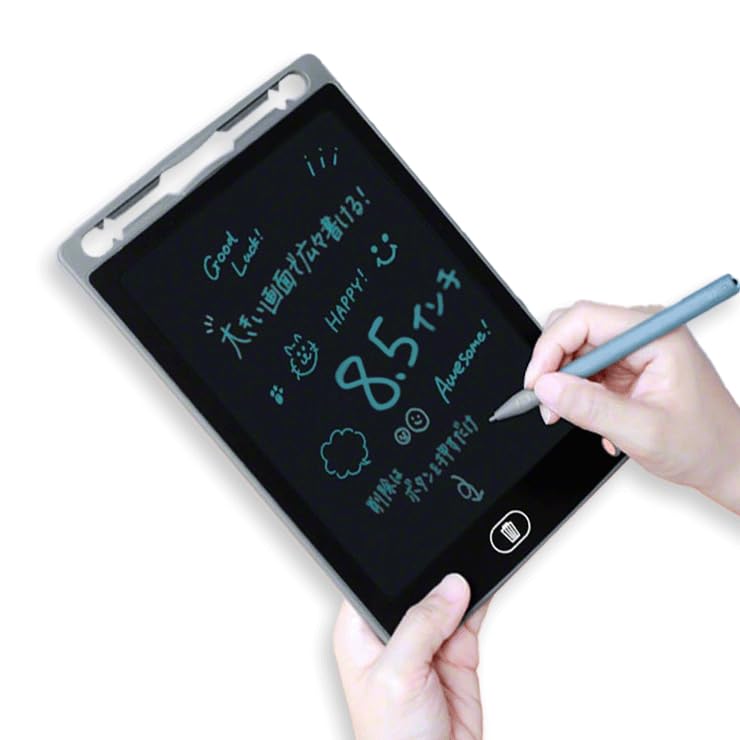 Good
Luck!
大きい画面で広々書ける!
HAPPY!
8.5インチ
Awesome!
削除は
ボタンを押すだけ